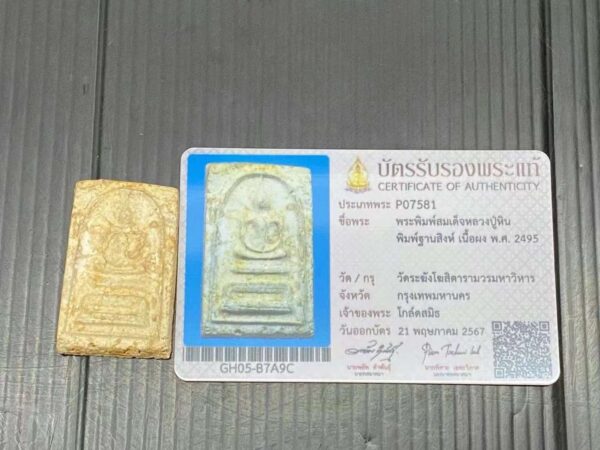 บัตรรับรองพระแท้
CERTIFICATE OF AUTHENTICITY
ประเภทพระ P07581
ชื่อพระ พระพิมพ์สมเด็จหลวงปู่หิน
พิมพ์ฐานสิงห์ เนื้อผง พ.ศ. 2495
วัด / กรุ วัดระฆังโฆสิตารามวรมหาวิหาร
จังหวัด กรุงเทพมหานคร
เจ้าของพระ โกล์ดสมิธ
วันออกบัตร 21 พฤษภาคม 2567
GH05-B7A9C